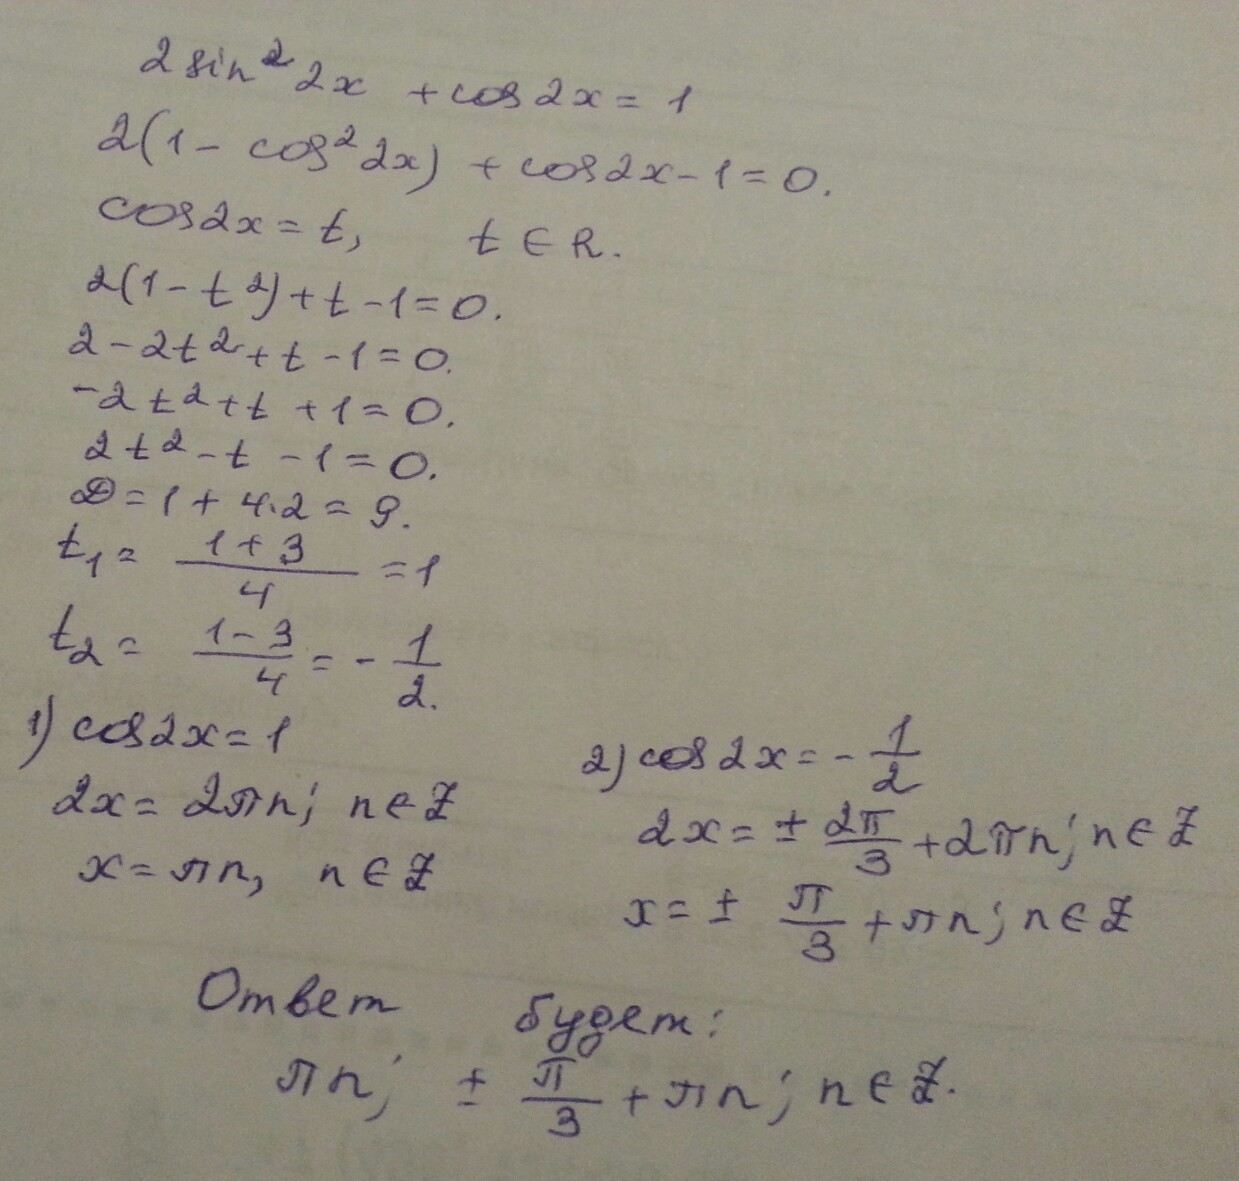 2 sin² 2x + cos 2x = 1
2(1 - cos² 2x) + cos 2x - 1 = 0.
cos 2x = t, t ∈ R.
2(1 - t²) + t - 1 = 0.
2 - 2t² + t - 1 = 0.
-2t² + t + 1 = 0.
2t² - t - 1 = 0.
D = 1 + 4·2 = 9.
t₁ = (1 + 3)/4 = 1
t₂ = (1 - 3)/4 = - 1/2.
1) cos 2x = 1
2x = 2πn; n ∈ Z
x = πn, n ∈ Z
2) cos 2x = - 1/2
2x = ± 2π/3 + 2πn; n ∈ Z
x = ± π/3 + πn; n ∈ Z
Ответ будет:
πn; ± π/3 + πn; n ∈ Z.